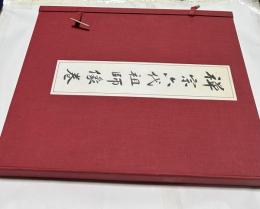 禅宗六代祖師像巻